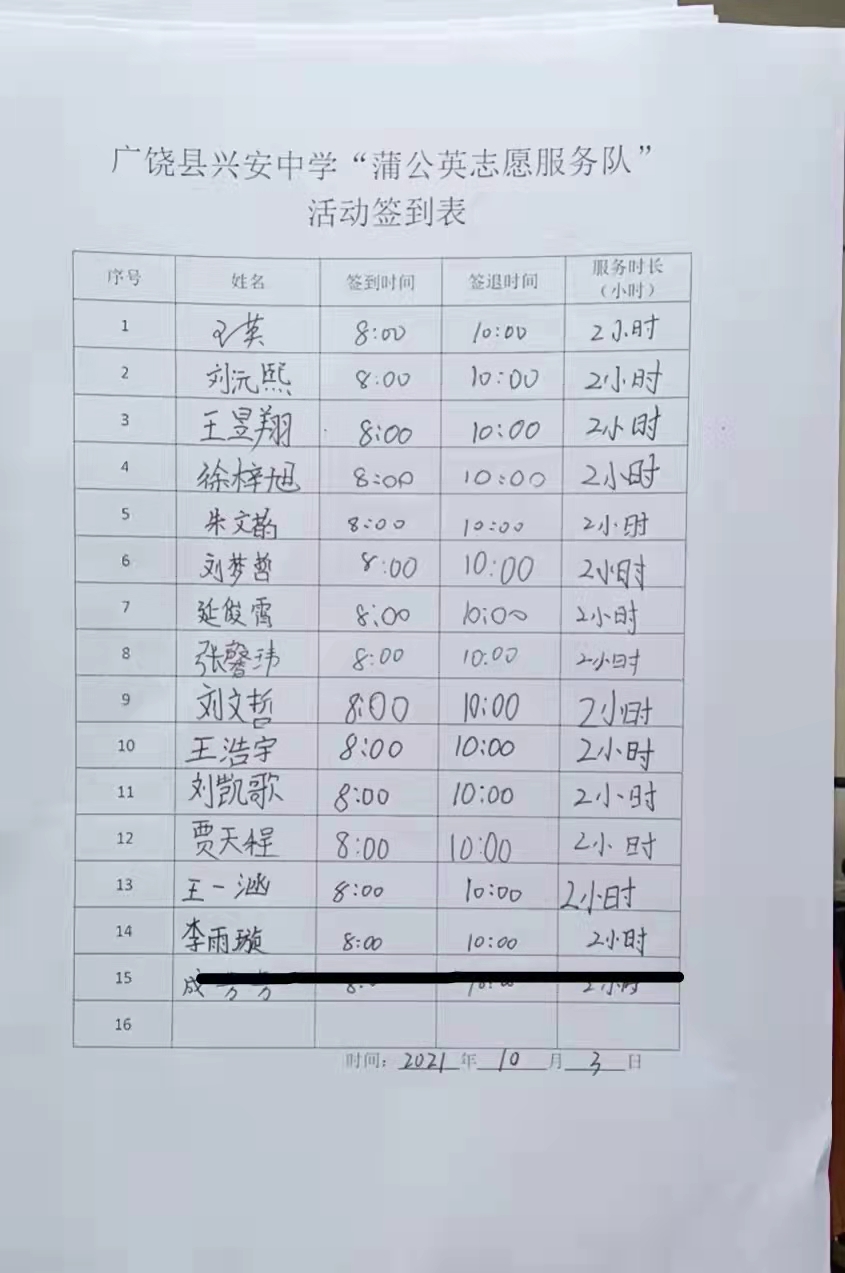 广饶县兴安中学“蒲公英志愿服务队”
活动签到表
序号 姓名 签到时间 签退时间 服务时长（小时）
1 王英 8:00 10:00 2小时
2 刘沅熙 8:00 10:00 2小时
3 王昱翔 8:00 10:00 2小时
4 徐梓旭 8:00 10:00 2小时
5 朱文 8:00 10:00 2小时
6 刘梦哲 8:00 10:00 2小时
7 延俊霄 8:00 10:00 2小时
8 张馨玮 8:00 10:00 2小时
9 刘文哲 8:00 10:00 2小时
10 王浩宇 8:00 10:00 2小时
11 刘凯歌 8:00 10:00 2小时
12 贾天程 8:00 10:00 2小时
13 王一涵 8:00 10:00 2小时
14 李雨璇 8:00 10:00 2小时
15 成 2小时
16
时间：2021年10月3日